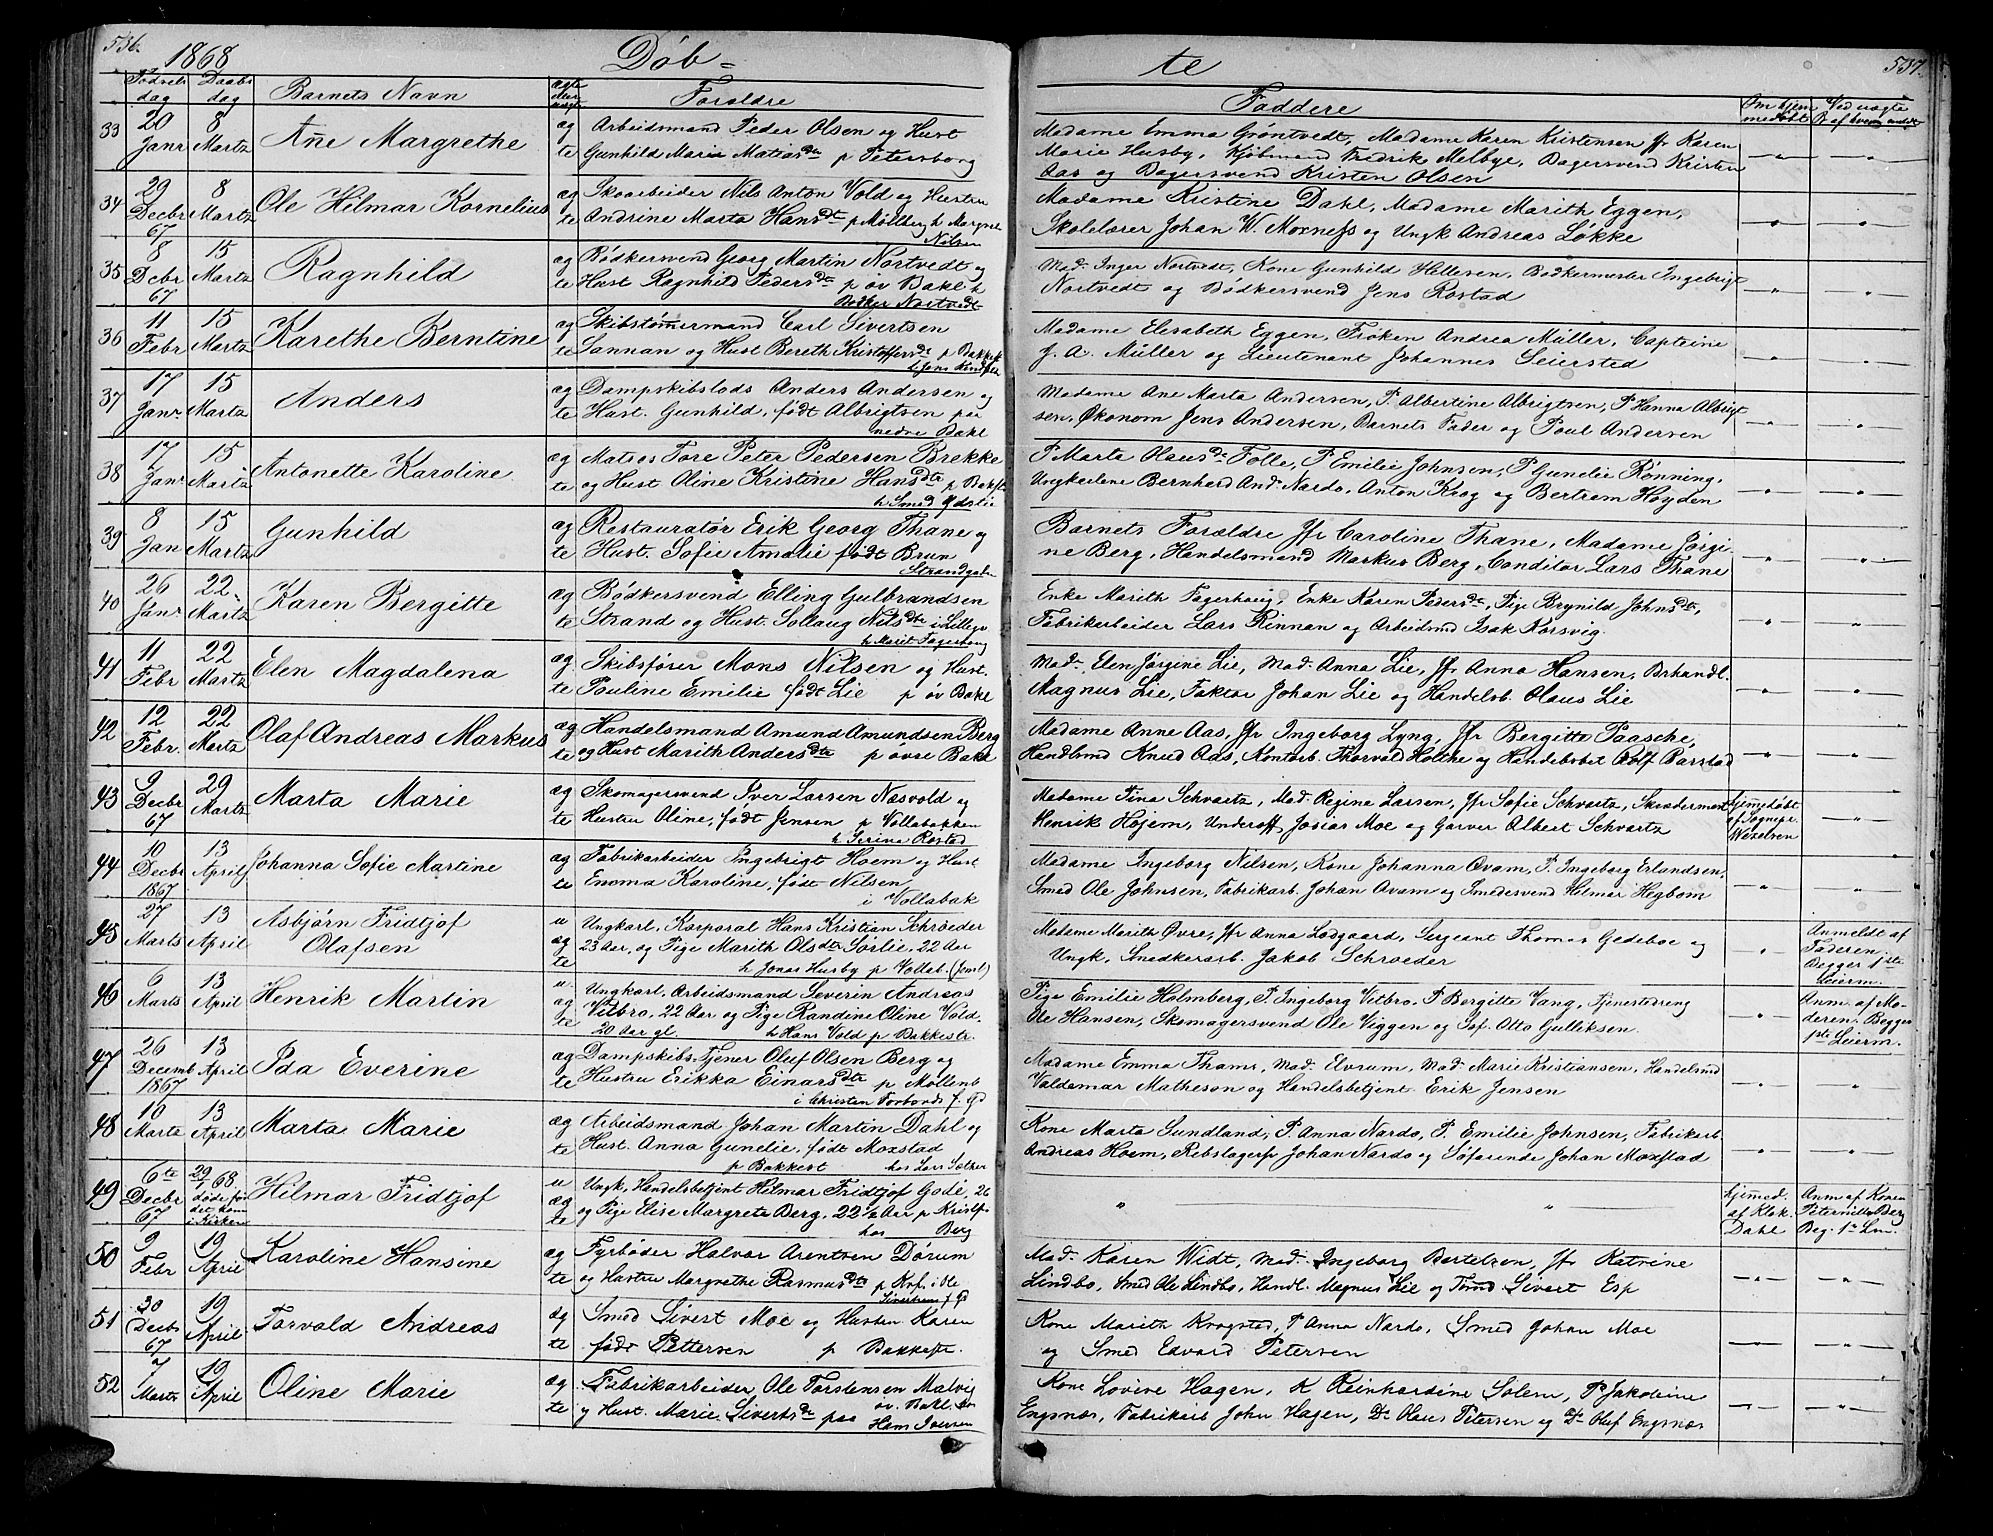 536.
1868
Døb=
Fødsels
dag
Daabs
dag
Barnets Navn
ægte
eller
uægte
Foræld­re
33 20 Janr 8 Martz Añe Margrethe ægte
Arbeidsmand Peder Olsen og Hust
Gunhild Marie Matiasdtr p Petersborg
34 29 Decbr 67 8 Martz Ole Hilmar Kornelius ægte
Skoarbeider Nils Anton Vold og Hustru
Andrine Marta Hansdtr p Møllberg h Margret
Nilsen
35 8 Dcbr 67 15 Martz Ragnhild ægte
Bødkersvend Georg Martin Nortvedt og
Hust Ragnhild Pedersdtr p øv Bakl h
Bødker Nortvedt
36 11 Febr 15 Martz Karethe Berntine ægte
Skibstømermand Carl Sivertsen
Sannan og Hust Bereth Kristoffersdtr p Bakkest
h Jens
37 17 Janr. 15 Martz Anders ægte
Dampskibslods Anders Andersen og
Hust. Gunhild, født Albrigtsen paa
nedre Bakl
38 17 Janr 15 Martz Antonette Karoline ægte
Matros Tore Peter Pedersen Brekke
og Hust Oline Kristine Hansdtr p Bakst
h Smed Ydstie
39 8 Jan 15 Martz Gunhild ægte
Restauratør Erik Georg Thane og
Hust. Sofie Amalie født Brun
Strandgaden
40 26 Janr 22 Martz Karen Bergitte ægte
Bødkersvend Elling Gulbrandsen
Strand og Hust. Sollaug Nilsdtr i Lillegv
h Marit Fagerhoug
41 11 Febr 22 Martz Elen Magdalena ægte
Skibsfører Mons Nilsen og Hust.
Pauline Emilie født Lie p øv Bakl
42 12 Febr. 22 Martz Olaf Andreas Markus ægte
Handelsmand Amund Amundsen Berg
og Hust Marith Andersdtr p øvre Bakl
43 9 Decbr 67 29 Martz Marta Marie ægte
Skomagersvend Iver Larsen Næsvold og
Hustru Oline, født Jensen p Vollabakken
h Serina Rostad
44 10 Decbr 1867 13 April Johanna Sofie Martine ægte
Fabrikarbeider Ingebrigt Hoem og Hust
Emma Karoline, født Nilsen
i Vollabak
45 27 Marts 13 April Asbjørn Fridtjof Olafsen uægte
Ungkarl, Korporal Hans Kristian Schrøeder
23 Aar, og Pige Marith Olsdtr Sørlie, 22 Aar
h Jonas Husby p Vollab. (Jemt)
46 6 Marts 13 April Henrik Martin uægte
Ungkarl, Arbeidsmand Severin Andreas
Vitbro, 22 Aar og Pige Randine Oline Vold.
20 Aar gl. h Hans Vold p Bakkestr.
47 26 Decemb 1867 13 April Ida Everine ægte
Dampskibs Tjener Oluf Olsen Berg og
Hustru Erikka Einarsdtr p Møllenb
i Christen Forbords f. Gd
48 10 Marts 13 April Marta Marie ægte
Arbeidsmand Johan Martin Dahl og
Hust. Anna Gunelie, født Moxstad
p Bakkest hos Lars Sælker
49 6te Decbr 67 29/1 68. døde før det kom i Kirken Hilmar Fridtjof uægte
Ungk, Handelsbetjent Hilmar Fridtjof Godé, 26
og Pige Elise Margrete Berg, 22½ Aar p Kristfs
hos Berg
50 9 Febr 19 April Karoline Hansine ægte
Fyrbøder Halvor Arentsen Dørum
og Hustru Margrethe Rasmusdtr p Krf. i Ole
Sivertsens f Gd
51 30 Decbr 67 19 April Torvald Andreas ægte
Smed Sivert Moe og Hustru Karen
født Pettersen p Bakkeste.
52 7 Martz 19 April Oline Marie ægte
Fabrikarbeider Ole Torstensen Malvig
og Hust. Marie Sivertsdtr paa øv. Bakl hos
Hans Iversen
537.
te
Faddere
Om hjem
medøbt
Ved uægte
B. af hvem anmeldt
Madame Emma Grøntvedt, Madame Karen Kristensen Jfr Karen
Marie Husby, Kjøbmand Fredrik Melbye, Bagersvend Kristen
Aas og Bagersvend Kristen Olsen
Madame Kristine Dahl, Madame Marith Eggen,
Skolelærer Johan W. Moxness og Ungk Andreas Løkke
Mad. Inger Nortvedt, Kone Gunhild Hellesen, Bødkermester Ingebrigt
Nortvedt og Bødkersvend Jens Rostad
Madame Elesabeth Eggen, Frøken Andrea Müller, Capteine
J. A. Müller og Lieutenant Johannes Seiersted
Madame Ane Marta Andersen, P. Albertine Albrigtsen, P Hanna Albrigt
sen, Økonom Jens Andersen, Barnets Fader og Poul Andersen
P Marta Olausdtr Folle, P Emilie Johnsen, P Gunelie Rønning,
Ungkarlene Bernhard And. Nardo, Anton Krog og Bertrem Høyden
Barnets Forældre Jfr Caroline Thane, Madame Jørgi-
ne Berg, Handelsmand Markus Berg, Conditor Lars Thane
Enke Marith Fagerhoug, Enke Karen Pedersdtr, Pige Brynild Johnsdtr,
Fabrikarbeider Lars Rinnan og Arbeidsmd Isak Korsvig.
Mad. Elen Jørgine Lie, Mad. Anna Lie, Jfr Anna Hansen, Bghandl.
Magnus Lie, Faktor Johan Lie og Handelsb. Olaus Lie
Madame Anne Aas, Jfr Ingeborg Lyng, Jfr Bergitte Paasche,
Handlsmd Knud Aas, Kontorb. Thorvald Holthe og Handelsbet Rolf Barstad
Madame Tina Schvartz, Mad. Regina Larsen, Jfr Sofie Schvartz, Skrædermest
Henrik Hojem, Underoff Josias Moe og Garver Albert Schvartz
hjemedøbt
af Sognepr.
Wexelsen
Madame Ingeborg Nilsen, Kone Johanna Qvam, P. Ingeborg Erlandsen,
Smed Ole Johnsen, Fabrikarb. Johan Qvam og Smedesvend Hilmar Hegbom
Madame Marith Øvre, Jfr Anna Lodgaard, Sergeant Thomas Gedeboe og
Ungk, Snedkerarb. Jakob Schrøeder
Anmeldt af
Faderen.
Begges 1ste
Leierm.
Pige Emilie Holmberg, P. Ingeborg Vitbro, P Bergitte Vang, Tjenestedreng
Ole Hansen, Skomagersvend Ole Viggen og Sjøf. Otto Gulliksen.
Anm. af Mo-
deren. Begges
1ste Leierm.
Madame Emma Thams, Mad. Elvrum, Mad. Marie Kristiansen, Handelsmd
Valdemar Matheson og Handelsbetjent Erik Jensen
Kone Marta Sundland, P. Anna Nardo, P. Emilie Johnsen, Fabrikarb.
Andreas Hoem, Rebslagersv Johan Nardo og Søfarende Johan Moxstad
hjemed.
af Klok.
Dahl
Anm. af Konen
Peternille Berg
Beg. 1ste Lm.
Mad. Karen Widt, Mad. Ingeborg Bertelsen, Jfr Katrine
Lindbo, Smed Ole Lindbo, Handl. Magnus Lie og Tømd Sivert Esp
Kone Marith Krogstad, P Anna Nardo, Smed Johan Moe
og Smed Edvard Petersen
Kone Lovise Hagen, K Reinhardine Solem, P Jakobine
Engsnæs, Fabrikarb John Hagen, Do Olaus Petersen og Do Oluf Engsnæs